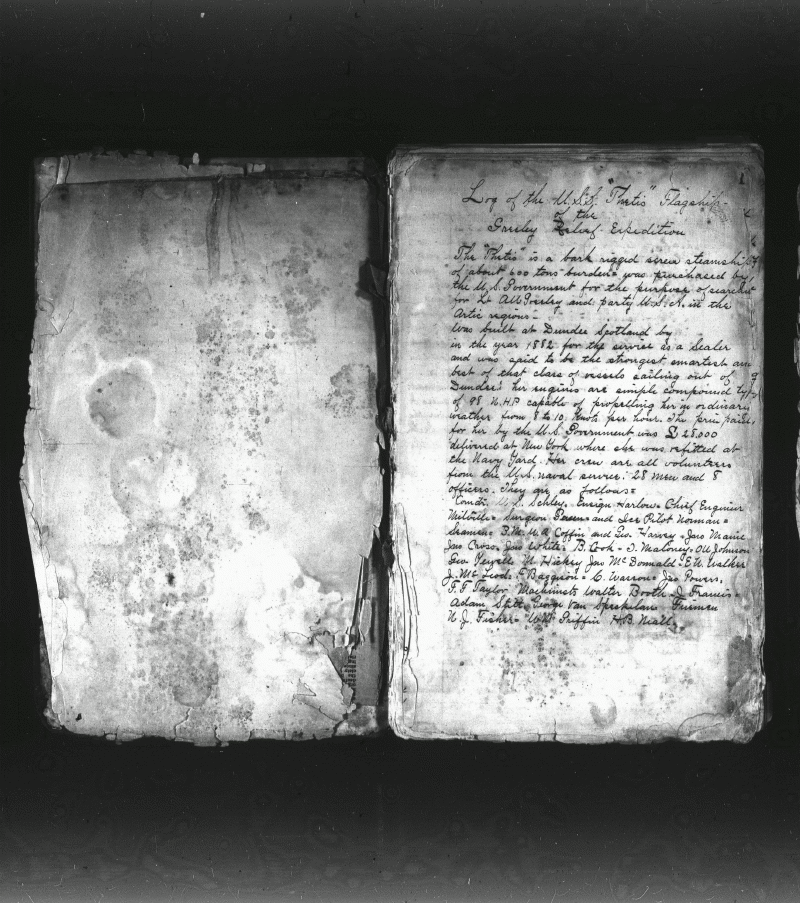 1
Log of the U.S.S. "Thetis" Flagship-
of the
Greeley Relief Expedition
The "Thetis" is a bark rigged screw steamship
of about 600 tons burden = was purchased by
the U.S. Government for the purpose of search
for Lt A.W. Greeley and party U.S.A. in the
Artic regions =
Was built at Dundee Scotland by
in the year 1882 for the service as a Sealer
and was said to be the strongest smartest an
best of that class of vessels sailing out of
Dundee: her engines are simple compound
of 98 N.H.P capable of propelling her in ordinary
weather from 8 to 10 Knots per hour. The price paid
for her by the U.S. Government was £ 28.000
delivered at New York where she was refitted at
the Navy Yard. Her crew are all volunteers
from the U.S. naval service: 28 men and 8
officers. They are as follows =
Comdr. W.S. Schley. Ensign Harlow = Chief Engineer
Melville = Surgeon and Ice Pilot Norman =
Seamen = Coffin and Geo. Harvey = Jas
Jas Cross. Jno White = B. Cook = T. Maloney. Johnson
Geo. Hickey Jno McDonnald = E.W. Walker
J. McLeod = = C. = Jno Powers.
F.F. Taylor Machinists Walter Booth = J. Francis =
Adam George Van Firemen
N.J. Fisher = Wm Griffin H.B. Neall.